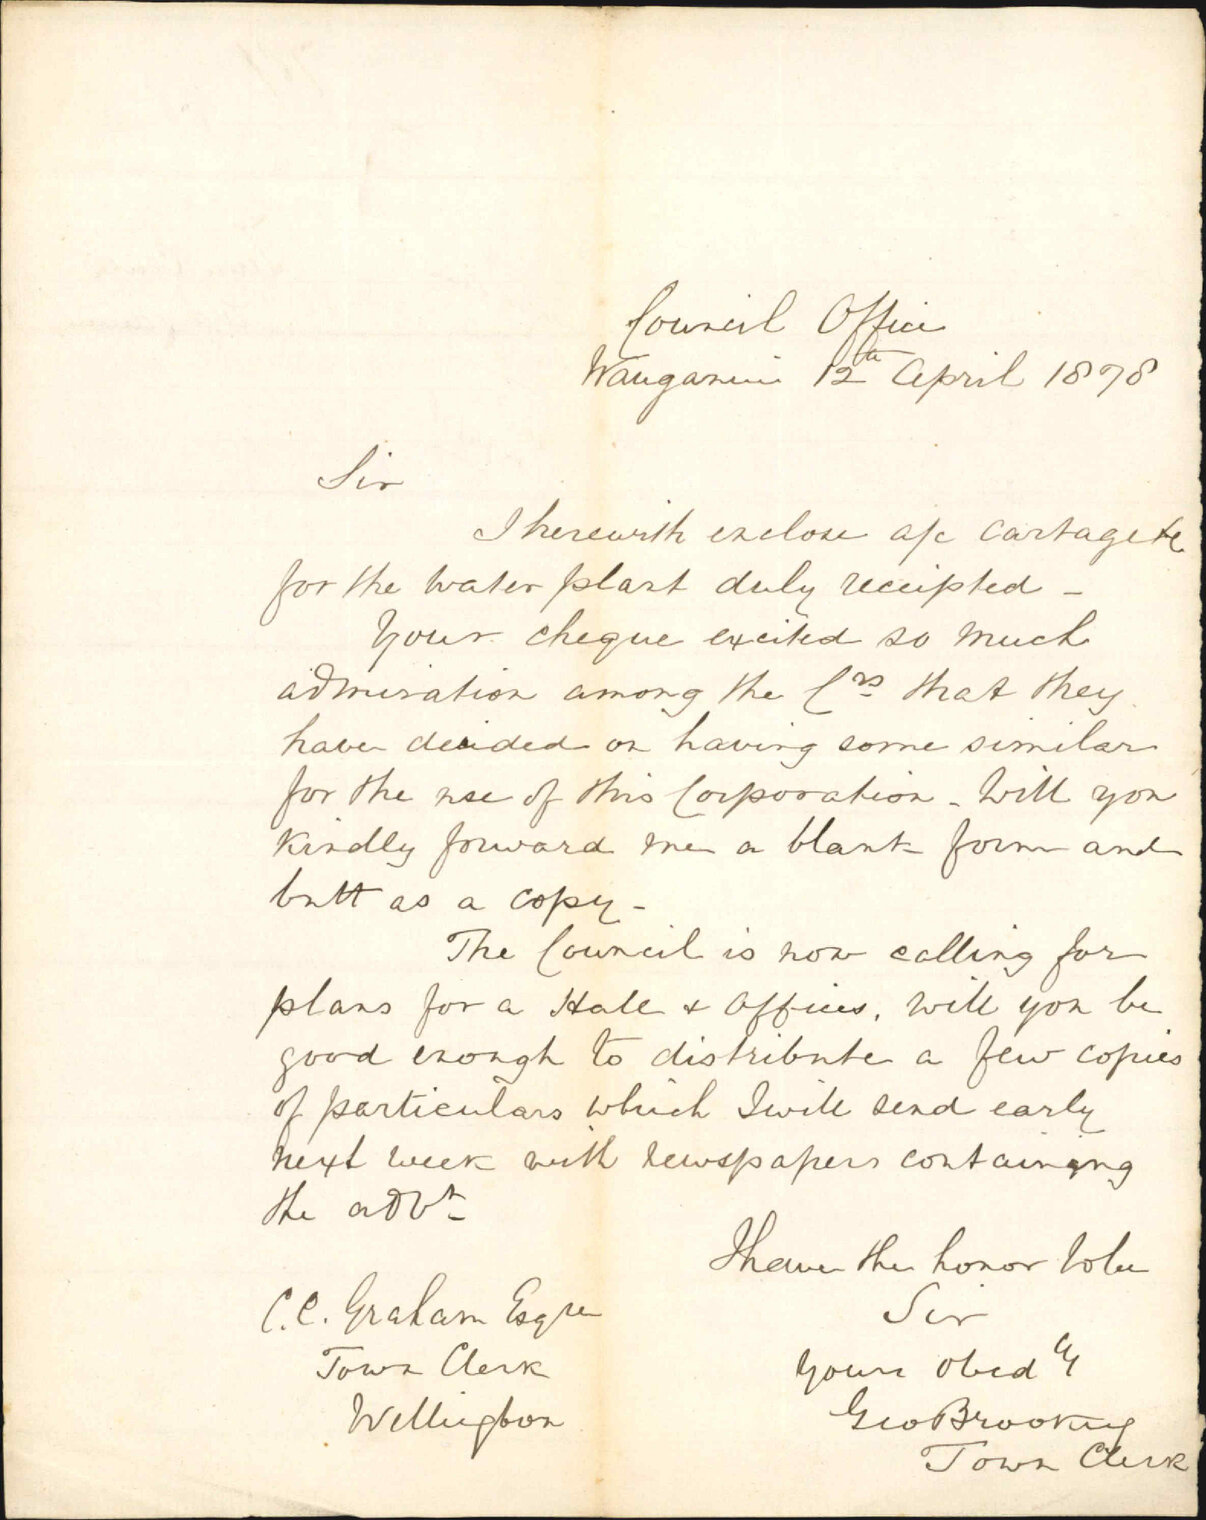 Council Office
Wanganui 12th April 1878
Sir
I herewith enclose a/c cartage &c
for the water plant duly receipted -
Your cheque excited so much
admiration among the Crs that they
have decided on having some similar
for the use of this Corporation - Will you
kindly forward me a blank form and
butt as a copy -
The Council is now calling for
plans for a Hall & Offices, will you be
good enough to distribute a few copies
of particulars which I will send early
next week with newspapers containing
the advt
I have the honor to be
Sir
Yours obedly
Geo Brooking
Town Clerk
C.C. Graham Esqre
Town Clerk
Wellington